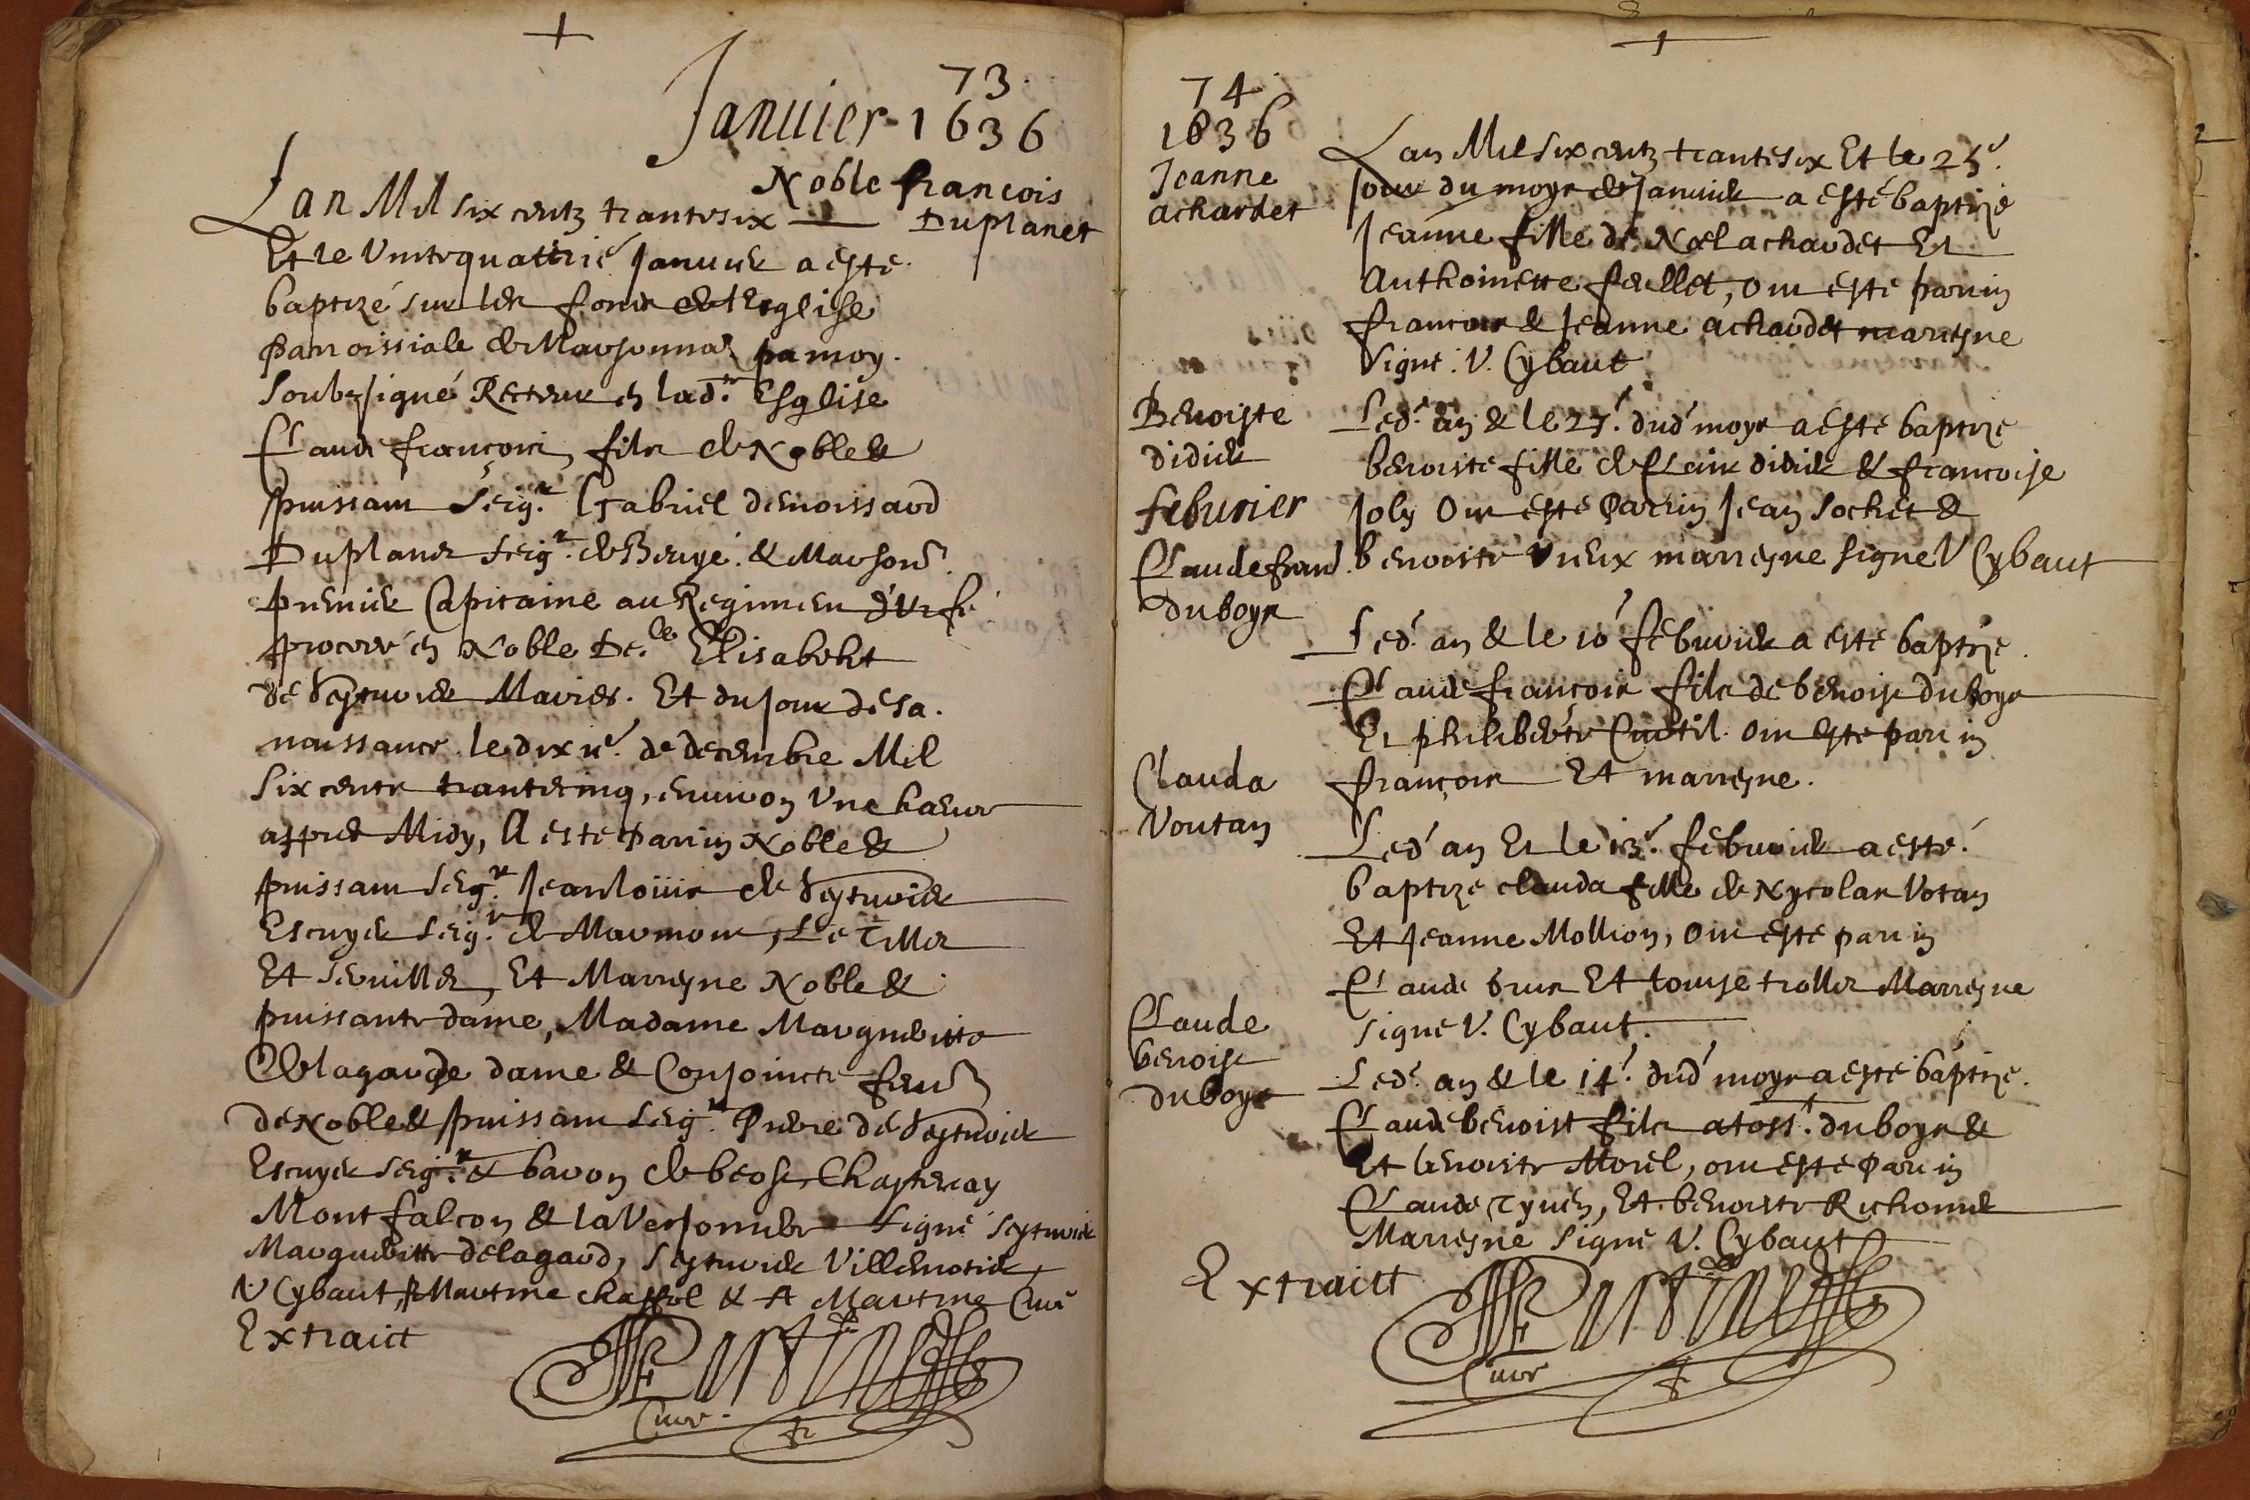 73
Januier 1636
Noble francois
Duplanet
Lan Mil six centz trantesix
Et le vintequattrié Januier a esté
baptizé sur les fons de l'Esglise
Parroissiale de Marsonnaz par moy
soubzsigné Recteur en lad. Esglise
Claude françois, filz de Noble &
puissant Seigr. Gabriel demoissard
Duplanet seigr. de &
premier Capitaine au Regiment d'Vrfé
procrée en Noble De.lle Elisabeht
de Seyturier Mariés. Et du jour de sa
naissance le dix de decembre Mil
six centz trantecinq, enuiron vne haeure
appres Midy, A esté Parrin Noble &
puissant seigr. Jean louis de Seyturier
Escuyer seigr. de Marmont, Le Tiller
Et seruillet, Et Marreyne Noble &
puissante dame, Madame Margueritte
Delagarde dame & Conjoincte
de Noble & puissant seigr. Pierre de Seyturier
Escuyer seigr. & baron de beost, Chastenay
Montfalcon & la Verjonniere signé Seyturier
Marguerite delagard, Seyturier Villenotier
V Cybaut, Martine chappol & A Martine Curé
Extraict
Curé
74
1636
Jeanne
achardet
Lan Mil six centz trantesix Et le 25e
Jour du moys de Januier a esté baptizé
Jeanne fille de Noel achardet Et
Anthoinette feullet, ont esté parrin
francois & Jeanne achardet marreyne
Signé. V. Cybaut
Benoiste
didier
Led. an & le 27e dud moys a esté baptize
benoiste fille de Claude didier & francoise
Joly Ont esté Parrin Jean Sochet &
benoiste vieux marreyne signé V Cybaut
feburier
Claude franc
duboys
Led. an & le 10e feburier a esté baptize
Claude françois filz de benoist duboys
Et philiberte Curtil ont esté parrin
françois Et marreyne.
Clauda
Voutan
Led an Et le 13e feburier a esté
baptize clauda fille de Nycolas Votan
Et Jeanne Mollion, ont esté parrin
Claude brun Et louyse trollier Marreyne
signé V. Cybaut
Claude
benoist
duboys
Led. an & le 14e dud moys a esté baptize
Claude benoist filz duboys &
Et benoiste Morel, ont esté Parrin
Claude Tynen, Et benoiste Richonnier
Marreyne Signé V. Cybaut
Extraict
Curé